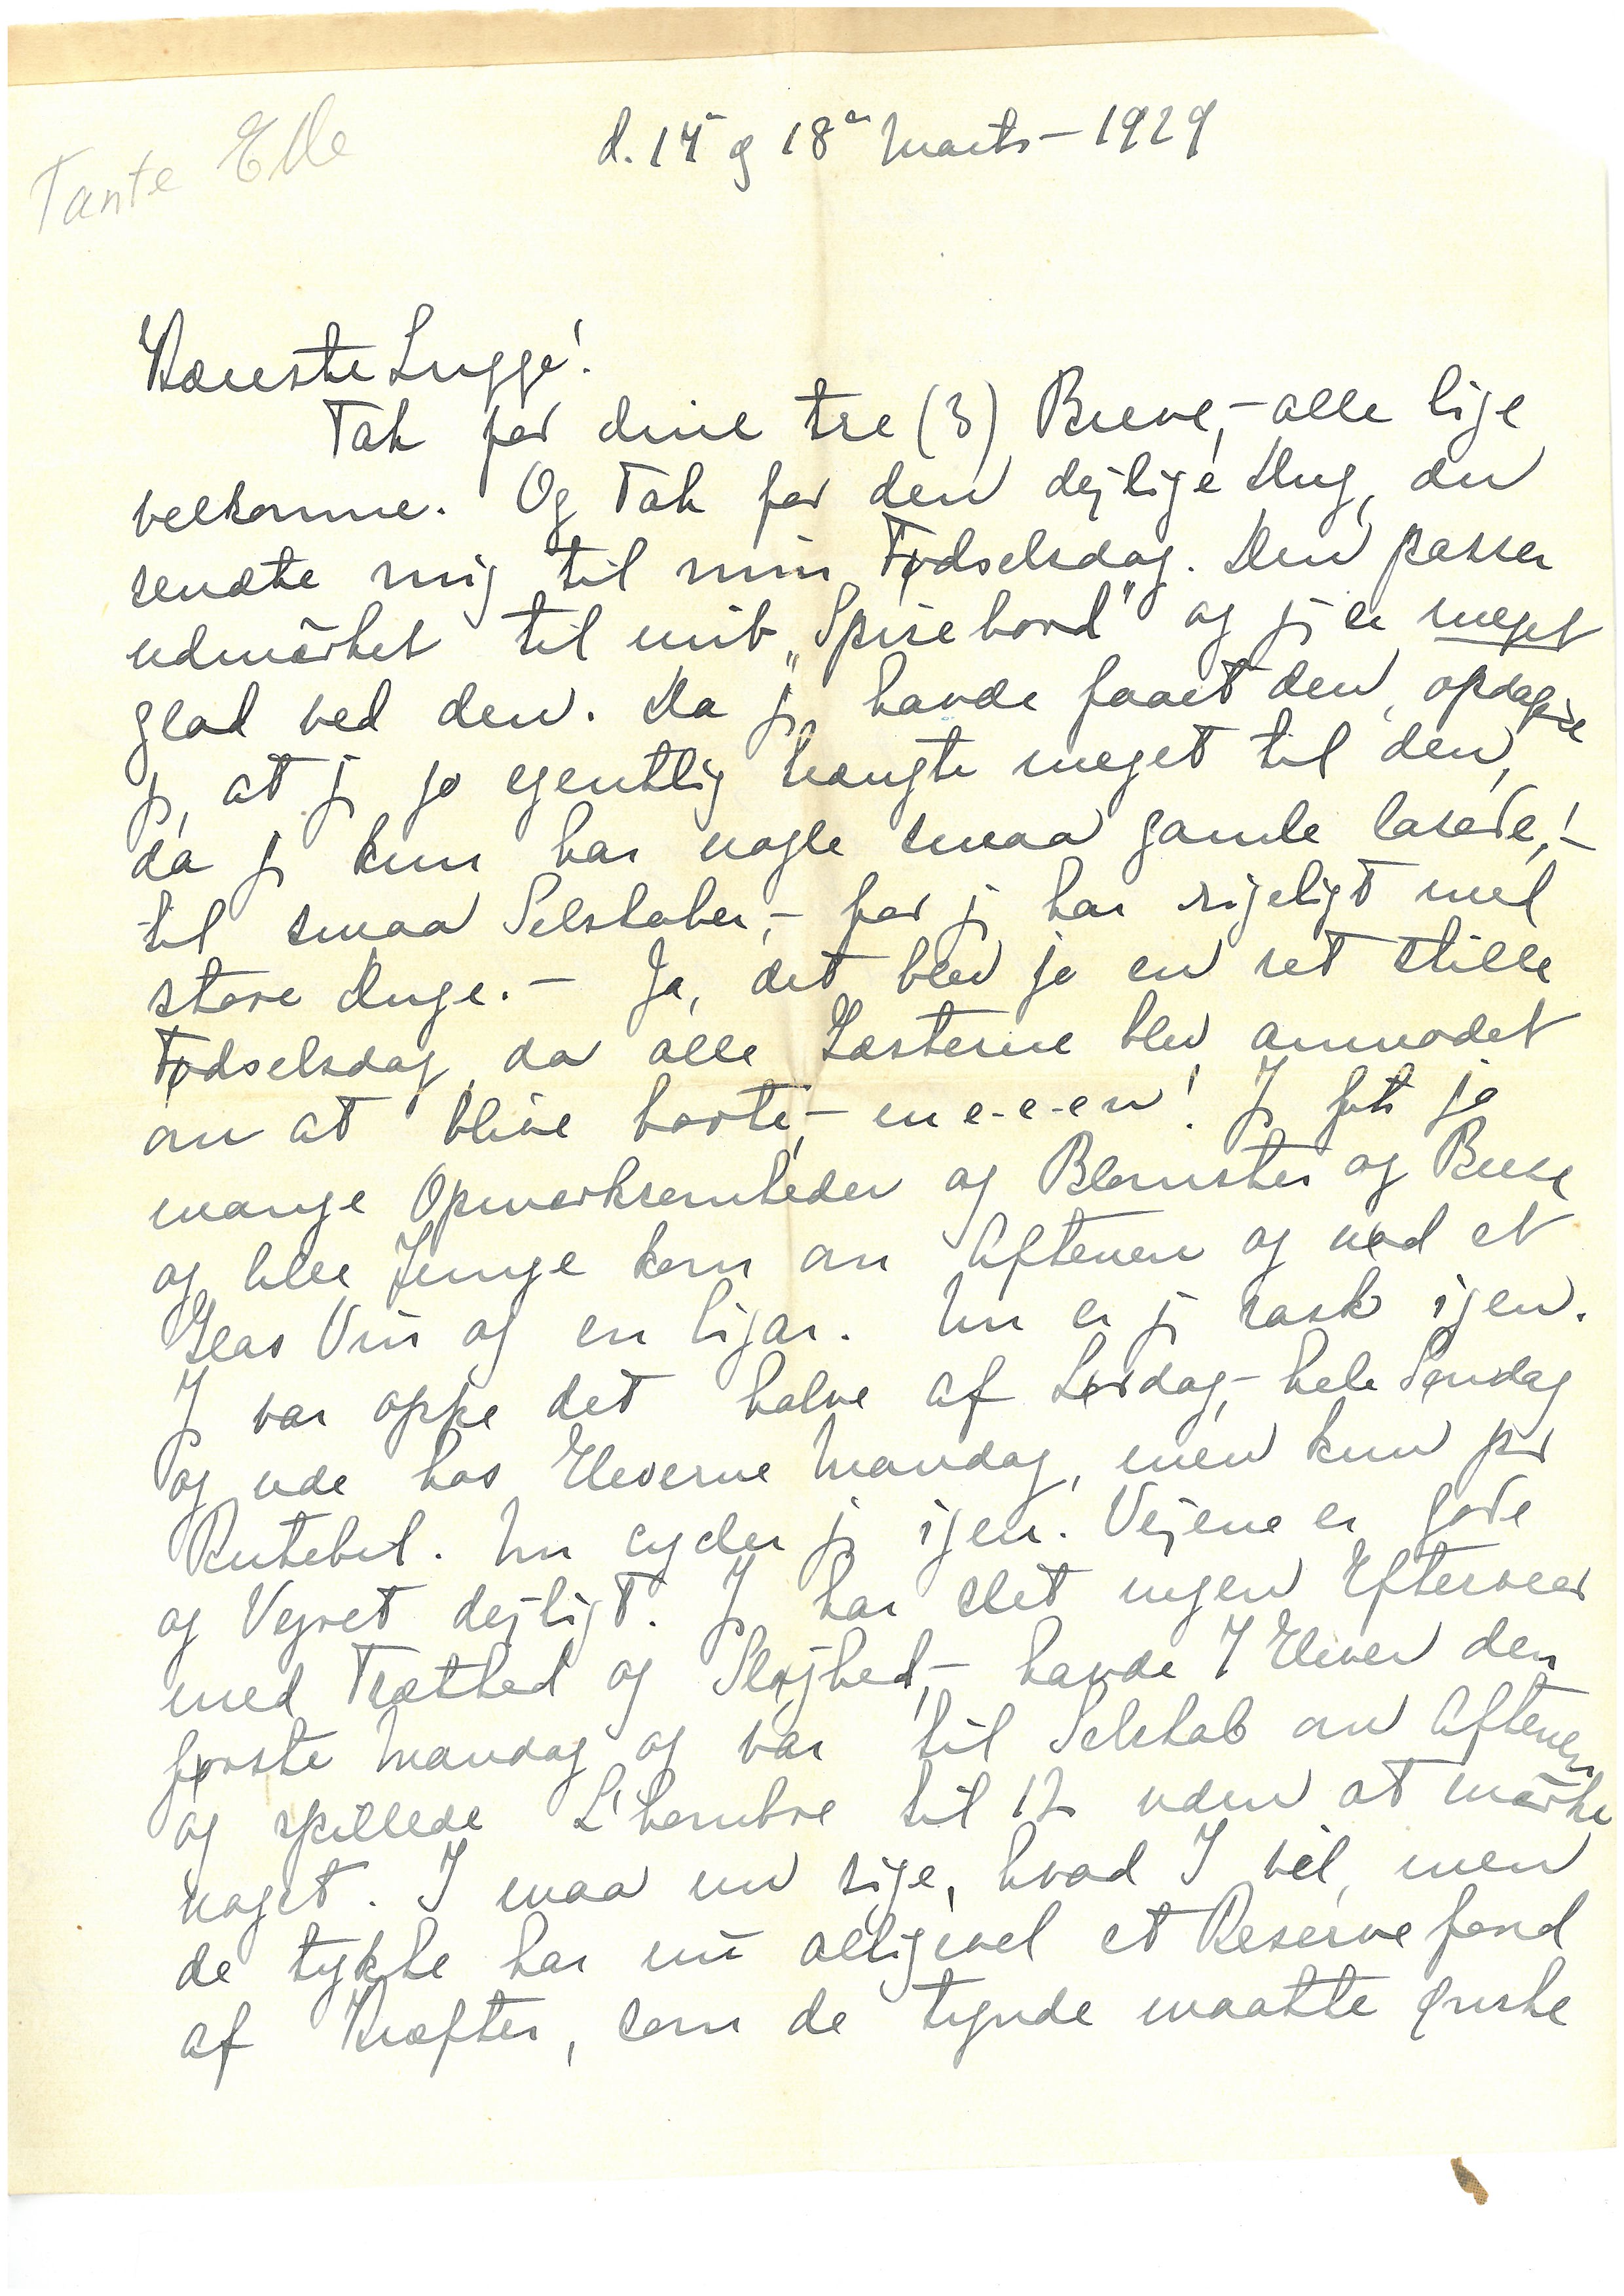 Tante Elle
d. 14de og 18de Marts – 1929
Kæreste Lugge!
Tak for dine tre (3) Breve, – alle lige
velkomne. Og Tak for den dejlige Dug, du
sendte mig til min Fødselsdag. Den passer
udmærket til mit „Spisebord” og jeg er meget
glad ved den. Da jeg havde faaet den, opdagede
jeg, at jeg jo egentlig trængte meget til den,
da jeg kun har nogle smaa gamle lasede, –
til smaa Selskaber, – for jeg har rigeligt med
store Duge. – Ja, det blev jo en ret stille
Fødselsdag, da alle Gæsterne blev anmodet
om at blive borte, – m e-e-e-n! Jeg fik jo
mange Opmærksomheder og Blomster og Breve
og lille Junge kom om Aftenen og nød et
Glas Vin og en Cigar. Nu er jeg rask igen.
Jeg var oppe det halve af Lørdag, – hele Søndag
og ude hos Eleverne Mandag, men kun pr
Rutebil. Nu cycler jeg igen. Vejene er gode
og Vejret dejligt. Jeg har slet ingen Efterveer
med Træthed og Sløjhed, – havde 7 Elever den
første Mandag og var til Selskab om Aftenen
og spillede L'hombre til 12 uden at mærke
noget. I maa nu sige, hvad I vil, men
de tykke har nu alligevel et Reservefond
af Kræfter, som de tynde maatte ønske